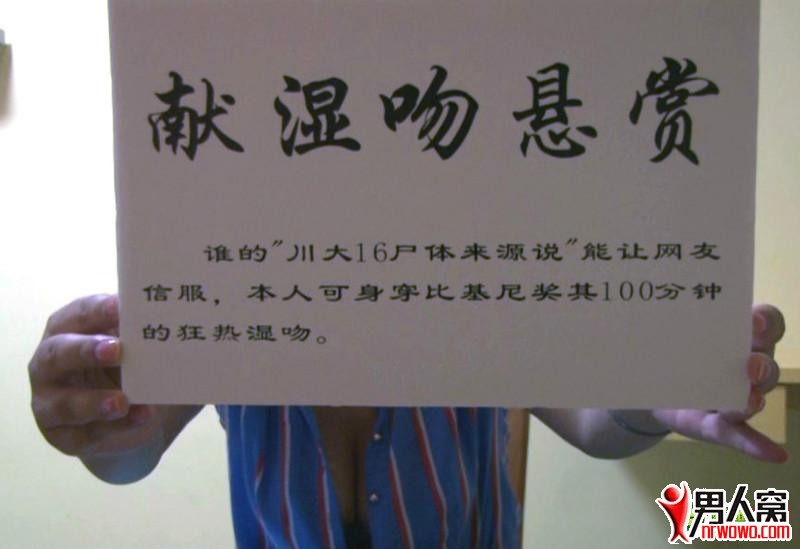 献湿吻悬赏
谁的"川大16尸体来源说"能让网友
信服，本人可身穿比基尼奖其100分钟
的狂热湿吻。
男人窝
nrwowo.com